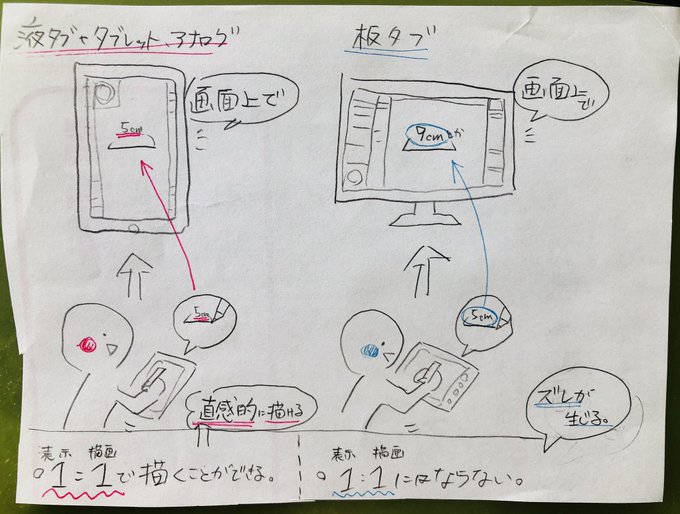 液タブやタブレット、アナログ
画面上で
5cm
5cm
直感的に描ける
表示 描画
○1=1で描くことができる。
板タブ
画面上で
9cmか
5cm
ズレが
生じる。
表示 描画
○1:1にはならない。